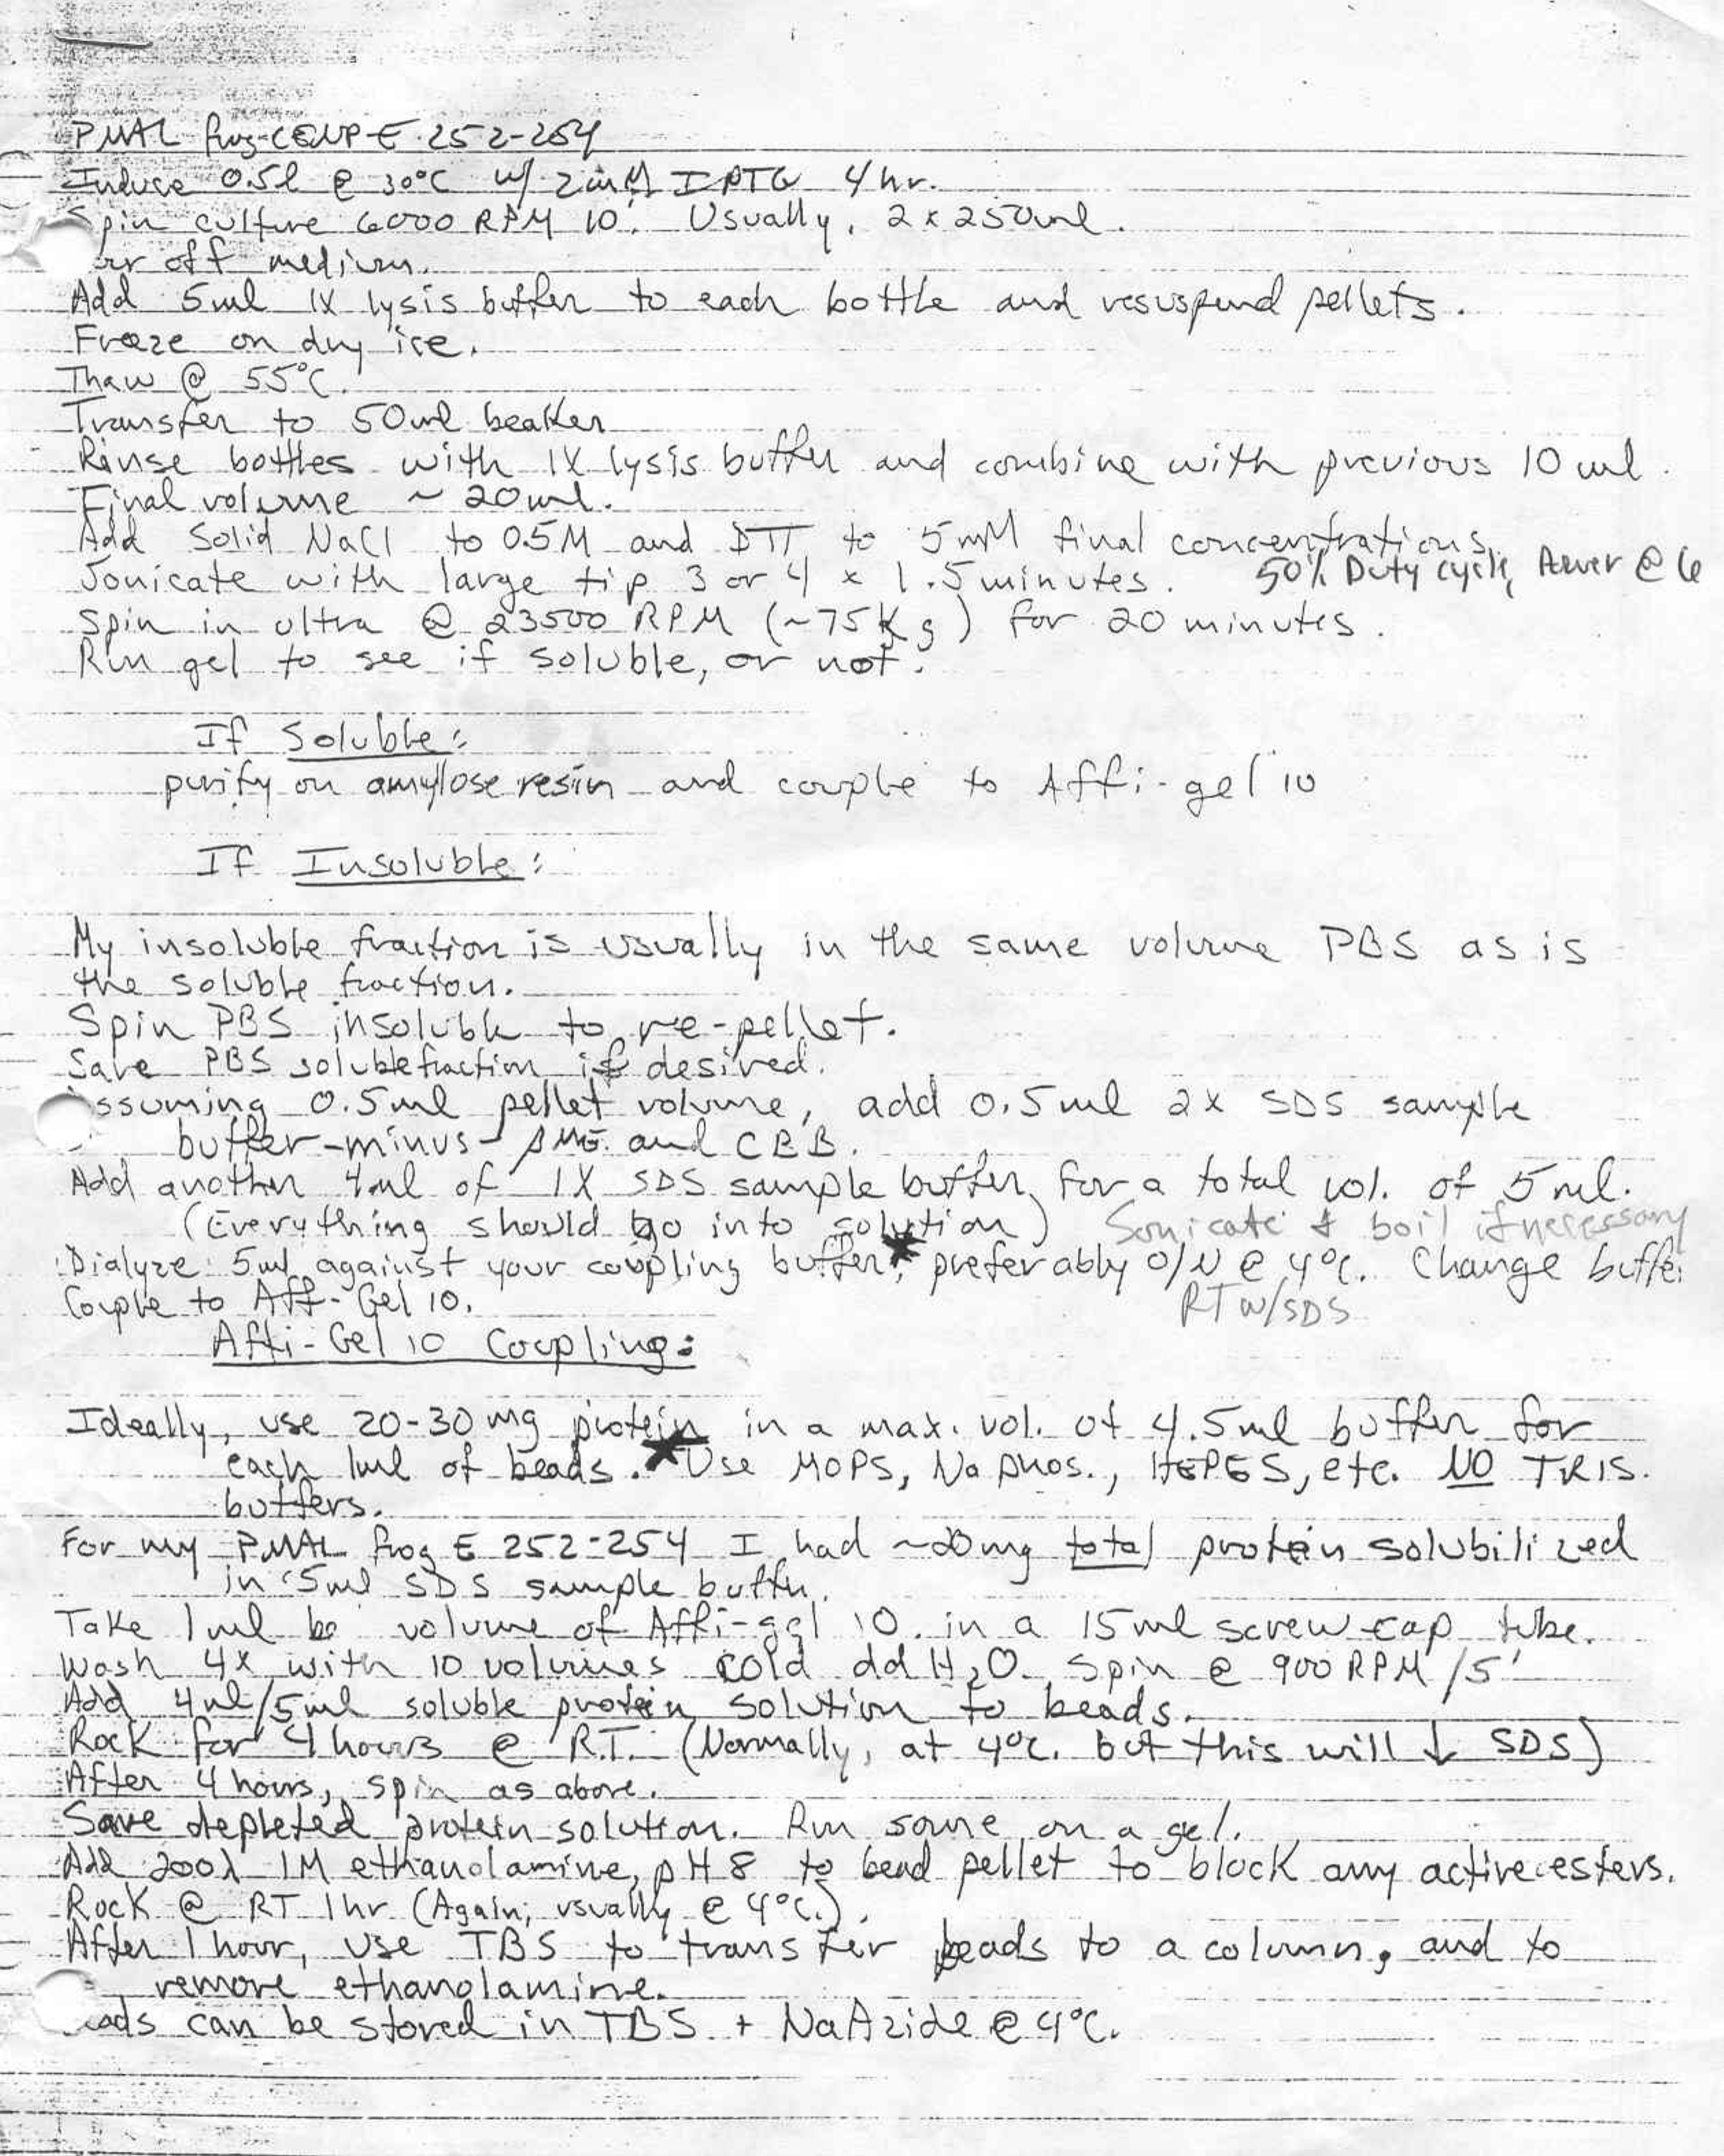 PMAL frog-CENP-E 252-254
Induce 0.5l @ 30°C w/ 2mM IPTG 4hr.
Spin culture 6000 RPM 10. Usually, 2 x 250ml.
off medium.
Add 5ml 1X lysis buffer to each bottle and resuspend pellets.
Freeze on dry ice.
Thaw @ 55°C.
Transfer to 50ml beaker
Rinse bottles with 1X lysis buffer and combine with previous 10 ml.
Final volume ~ 20ml.
Add Solid NaCl to 0.5M and DTT to 5mM final concentrations.
Sonicate with large tip 3 or 4 x 1.5 minutes. 50% Duty cycle, Power @ 6
Spin in ultra @ 23500 RPM (~75Kg) for 20 minutes.
Run gel to see if soluble, or not.
If Soluble:
purify on amylose resin and couple to Affi-gel 10
If Insoluble:
My insoluble fraction is usually in the same volume PBS as is
the soluble fraction.
Spin PBS insoluble to re-pellet.
Save PBS soluble fraction if desired.
ssuming 0.5ml pellet volume, add 0.5ml 2x SDS sample
buffer-minus-BME and CBB.
Add another 4ml of 1X SDS sample buffer, for a total vol. of 5ml.
(Everything should go into solution) Sonicate & boil if necessary
Dialyze 5ml against your coupling buffer*, preferably O/N @ 4°C. Change buffer
Couple to Aff-Gel 10. RT w/SDS
Affi-Gel 10 Coupling:
Ideally, use 20-30mg protein in a max. vol. of 4.5ml buffer for
each 1ml of beads. *Use MOPS, Na Phos., HEPES, etc. NO TRIS.
buffers.
For my PMAL frog E 252-254 I had ~20mg total protein solubilized
in 5ml SDS sample buffer.
Take 1ml be volume of Affi-gel 10 in a 15ml screw cap tube.
Wash 4X with 10 volumes cold ddH2O. Spin @ 900 RPM/5'
Add 4ml/5ml soluble protein solution to beads.
Rock for 4 hours @ R.T. (Normally, at 4°C. but this will ↓ SDS)
After 4 hours, spin as above.
Save depleted protein solution. Run some on a gel.
Add 200λ 1M ethanolamine, pH 8 to bead pellet to block any active esters.
Rock @ RT 1hr (Again, usually @ 4°C.).
After 1 hour, use TBS to transfer beads to a column, and to
remove ethanolamine.
ads can be stored in TBS + NaAzide @ 4°C.